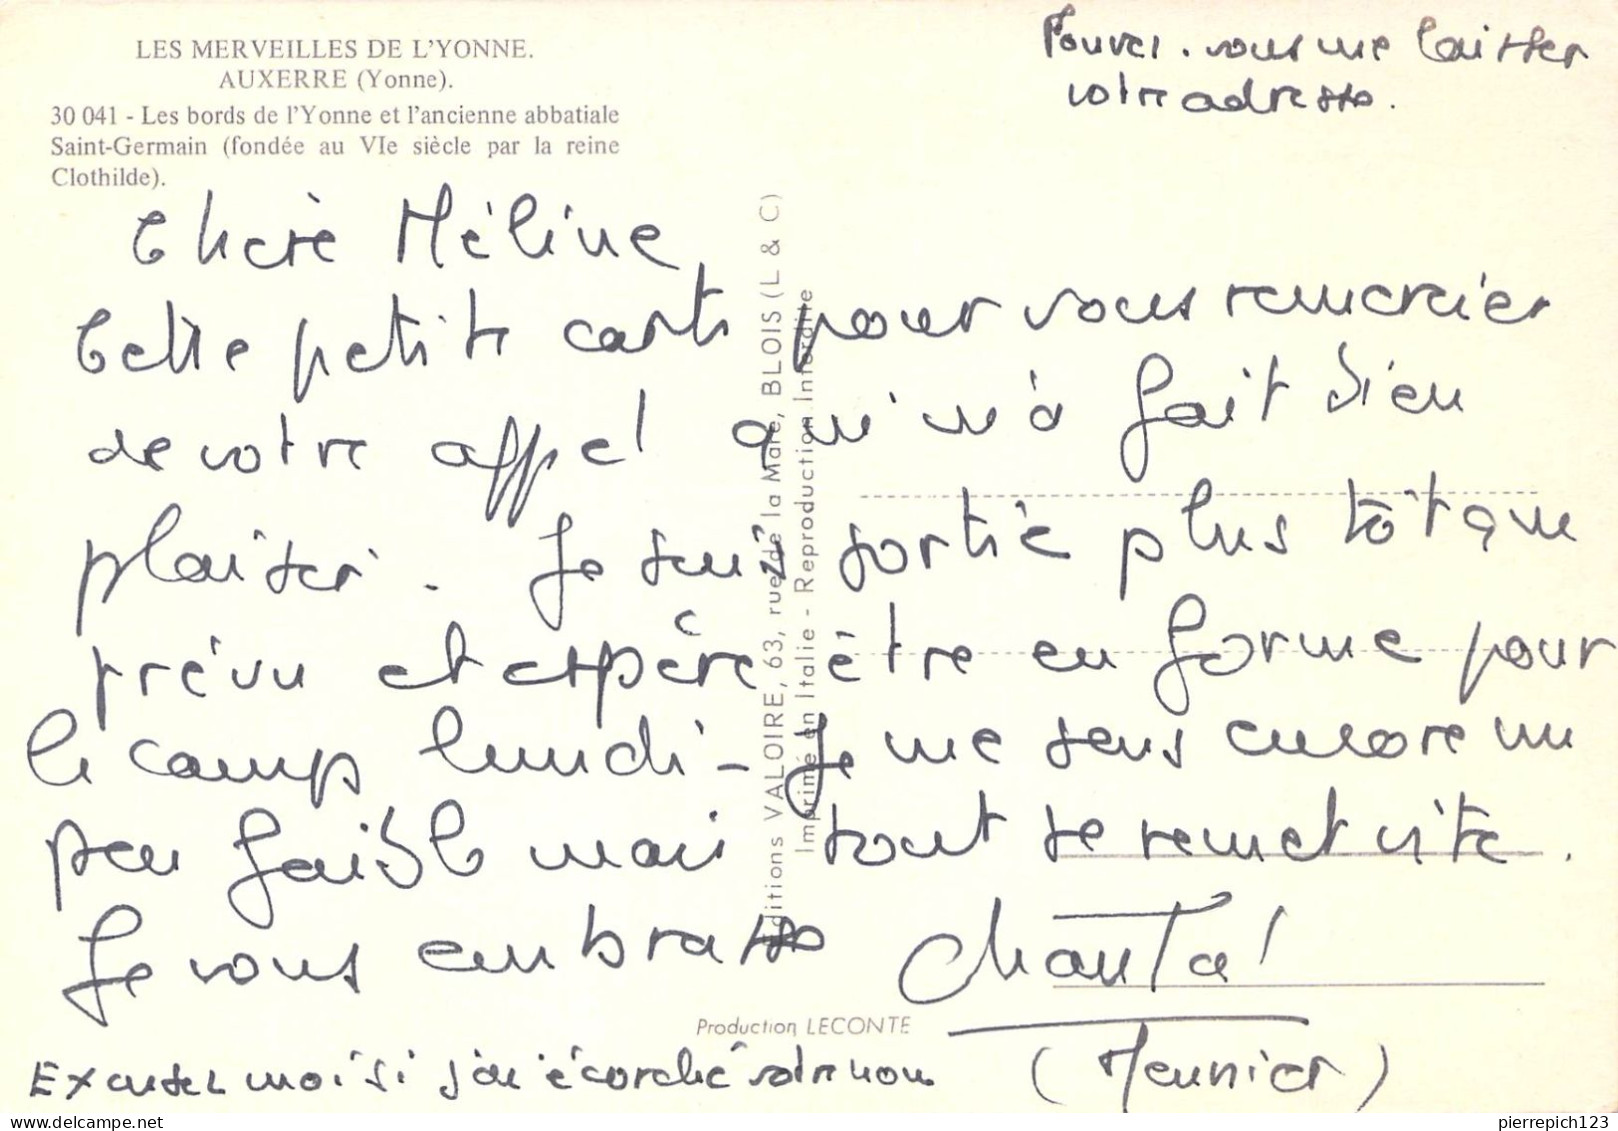 LES MERVEILLES DE L'YONNE.
AUXERRE (Yonne).
30 041 - Les bords de l'Yonne et l'ancienne abbatiale
Saint-Germain (fondée au VIe siècle par la reine
Clothilde).
Pouvez-vous me laisser
votre adresse.
Chère Méline
Cette petite carte pour vous remercier
de votre appel qui m'a fait bien
plaisir. Je suis sortie plus tôt que
prévu et espère être en forme pour
le camp lundi - Je me sens encore un
peu faible mais tout se remet vite.
Je vous embrasse Chantal
(Meunier)
Excusez moi si j'ai écorché votre nom
Editions VALOIRE, 63, rue de la Mare, BLOIS (L & C)
Imprimé en Italie - Reproduction Interdite
Production LECONTE
pierrepich123